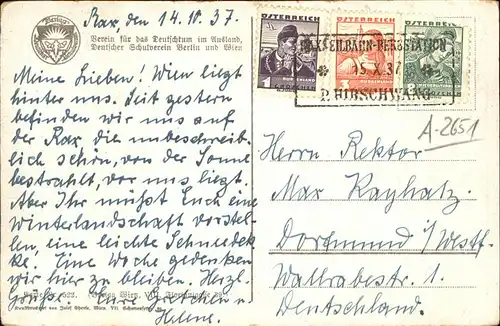 Rax, den 14. IV. 37.
Verein für das Deutschtum im Ausland,
Deutscher Schulverein Berlin und Wien
Meine Lieben! Wien liegt
hinter uns. Seit gestern
befinden wir uns auf
der Rax, die unbeschreib-
lich schön, von der Sonne
bestrahlt, vor uns liegt.
Aber Ihr müßt Euch eine
Winterlandschaft vorstel-
len, eine leichte Schneedek-
ke. Eine Woche gedenken
wir hier zu bleiben. Herzl.
Grüße Ihre Gretchen u
Helene.
Wien, VIII,
von Josef Eberle, Wien VII.
ÖSTERREICH
ÖSTERREICH
ÖSTERREICH
RAXSEILBAHN-BERGSTATION
15. X. 37
P. HIRSCHWANG
A-2651
Herrn Rektor
Max Kayhatz.
Dortmund i/Westf.
Wallrabestr. 1.
Deutschland.